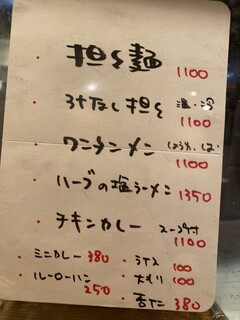 ・担々麺 1100
・汁なし担々 温・冷 1100
・ワンタンメン しょうゆ、しお 1100
・ハーブの塩ラーメン 1350
・チキンカレー スープ付 1100
・ミニカレー 380 ・ライス 100
・ルーローハン 250 ・大もり 100
・杏仁 380